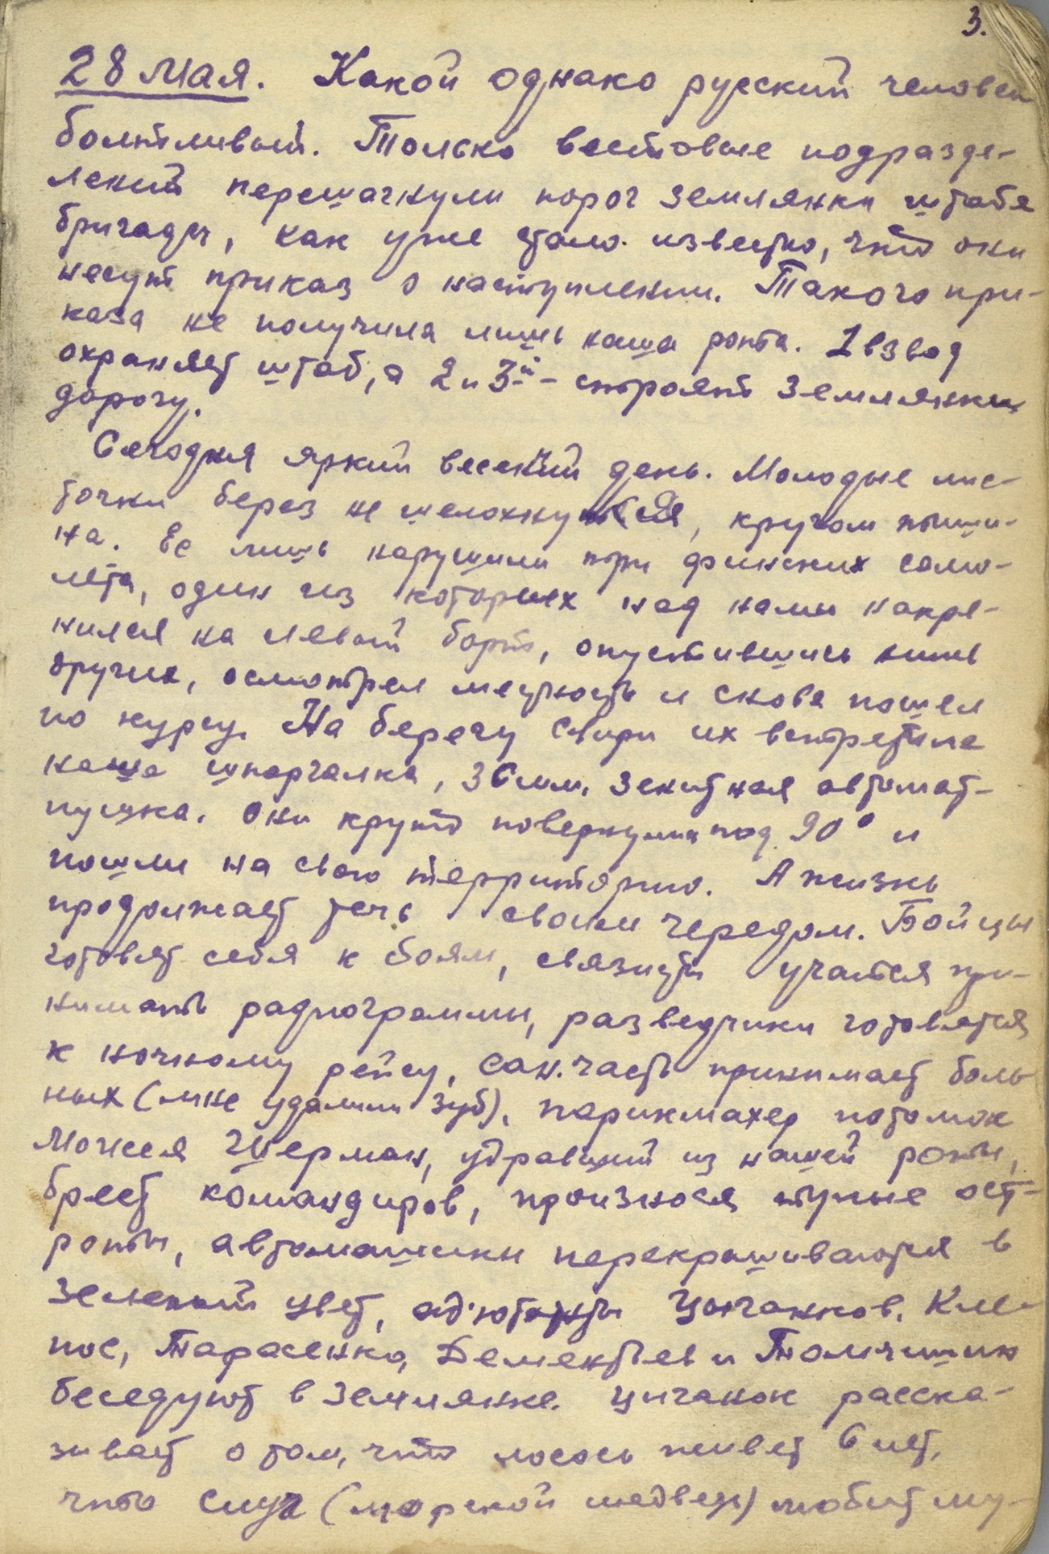 3.
28 мая. Какой однако русский человек
болтливый. Только вестовые подразде-
лений перешагнули порог землянки штаба
бригады, как уже стало известно, что они
несут приказ о наступлении. Такого при-
каза не получила лишь наша рота. 1 взвод
охраняет штаб, а 2 и 3й - строят землянки
дорогу.
Сегодня яркий весений день. Молодые лис-
точки берез не шелохнуться, кругом тиши-
на. Ее лишь нарушили три финских само-
лета, один из которых над нами накре-
нился на левый борт, опустившись ниже
других, осмотрел местность и снова пошел
по курсу. На берегу Свири их встретила
наша шпаргалка, 36мм. зенитная автомат-
пушка. Они круто повернули под 90° и
пошли на свою территорию. А жизнь
продолжает течь своим чередом. Бойцы
готовят себя к боям, связисты учатся при-
нимать радиограммы, разведчики готовятся
к ночному рейсу, сан. часть принимает боль-
ных (мне удалили зуб), парикмахер потомок
Моисея Шерман, удравший из нашей роты,
бреет командиров, произнося тупые ост-
роты, автомашины перекрашиваются в
зеленый цвет, ад'ютанты Цыганков,
пос, Тарасенко, Дементьев и
беседуют в землянке. Цыганок расска-
зывает о том, что лосось живет 6 лет,
что (морской медведь) любит му-